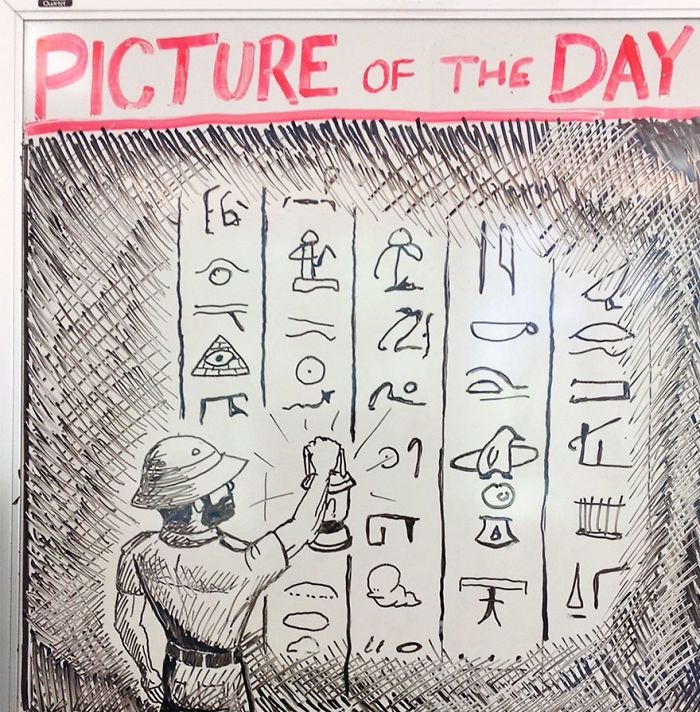 Quartet
PICTURE OF THE DAY